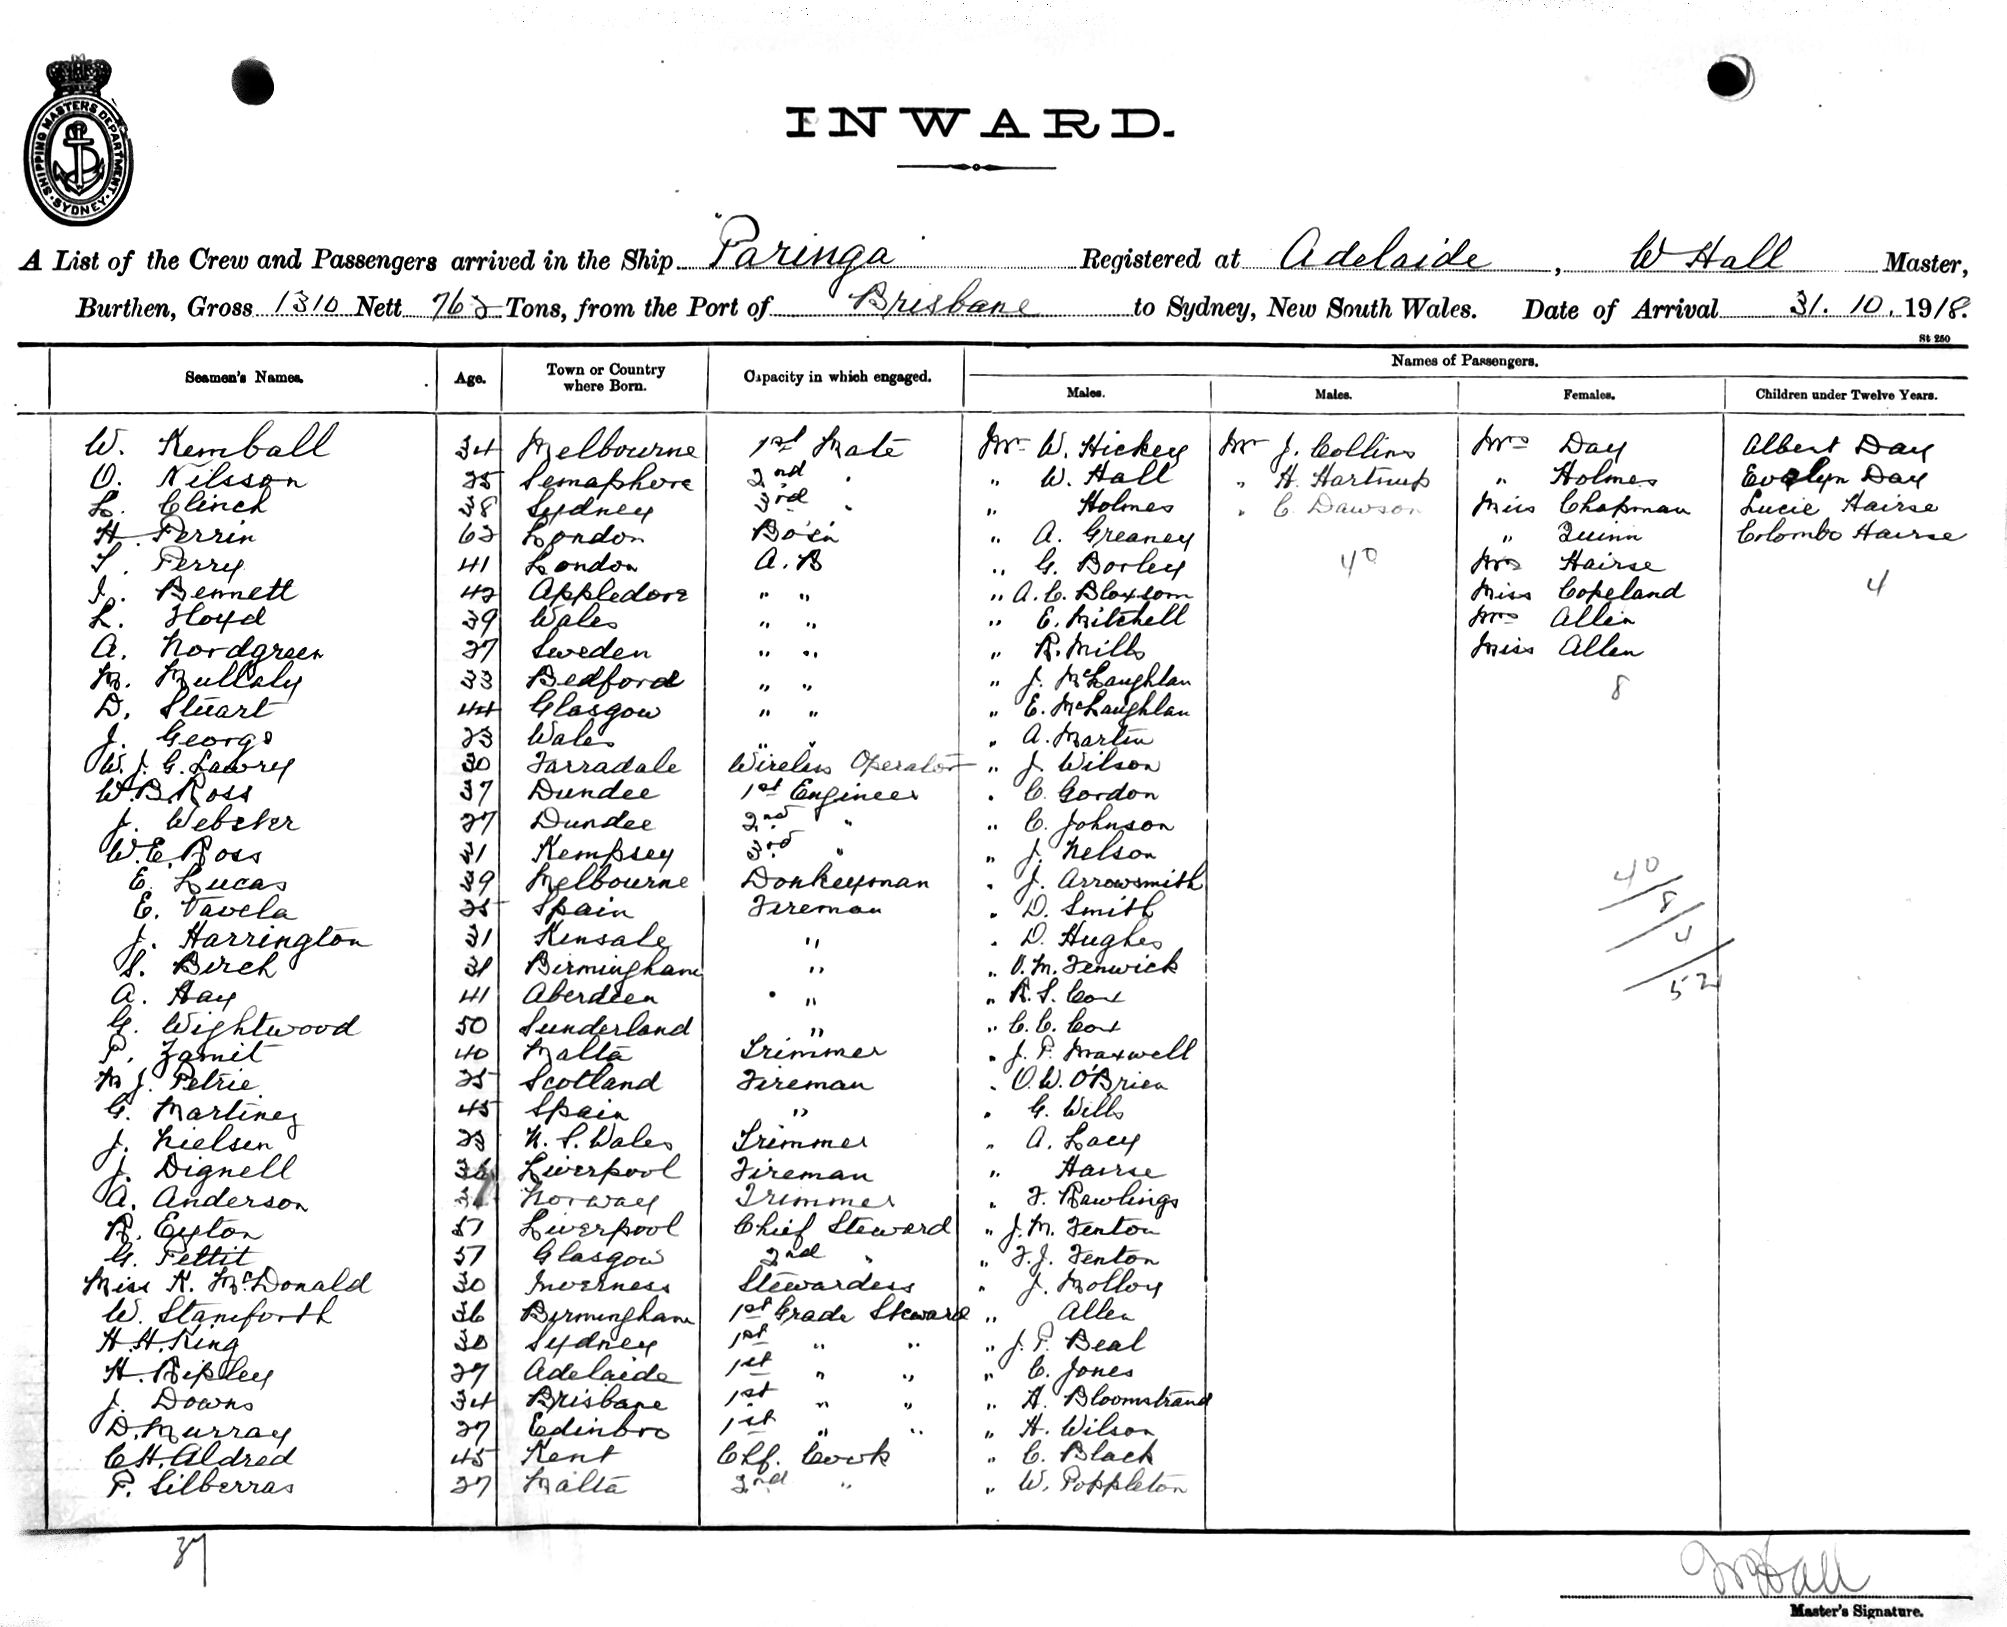 SHIPPING MASTERS DEPARTMENT SYDNEY
INWARD.
A List of the Crew and Passengers arrived in the Ship "Paringa Registered at Adelaide, W Hall Master,
Burthen, Gross 1310 Nett 762 Tons, from the Port of Brisbane to Sydney, New South Wales. Date of Arrival 31. 10. 1918.
St 250
Names of Passengers.
Seamen's Names. Age. Town or Country where Born. Capacity in which engaged. Males. Males. Females. Children under Twelve Years.
W. Kemball 34 Melbourne 1st Mate Mr W. Hickey Mr J. Collins Mrs Day Albert Day
O. Nilsson 25 Semaphore 2nd " " W. Hall " H. Hartnup " Holmes Evelyn Day
L. Clinch 38 Sydney 3rd " " Holmes " C. Dawson Miss Chapman Lucie Hairse
H. Perrin 62 London Bo'sn " A. Greaney " Quinn Colombo Hairse
S. Perry 41 London A.B " G. Borley 40 Mrs Hairse 4
J. Bennett 42 Appledore " " " A. C. Bloxsom Miss Copeland
L. Floyd 39 Wales " " " E. Mitchell Mrs Allen
A. Nordgreen 27 Sweden " " " R. Mills Miss Allen
M. Mullaly 33 Bedford " " " J. McLaughlan 8
D. Stuart 44 Glasgow " " " E. McLaughlan
J. George 23 Wales " " " A. Martin
W. J. G. Lawry 30 Tarradale Wireless Operator " J. Wilson
W. B. Ross 37 Dundee 1st Engineer " C. Gordon
J. Webster 27 Dundee 2nd " " C. Johnson
W. E. Ross 21 Kempsey 3rd " " J. Nelson
E. Lucas 39 Melbourne Donkeyman " J. Arrowsmith 40
E. Vavela 25 Spain Fireman " D. Smith 8
J. Harrington 31 Kinsale " " D. Hughes 4
S. Birch 31 Birmingham " " O. M. Fenwick 52
A. Hay 41 Aberdeen " " R. S. Cox
G. Wightwood 50 Sunderland " " C. C. Cox
P. Zamit 40 Malta Trimmer " J. P. Maxwell
M. J. Petrie 25 Scotland Fireman " O. W. O'Brien
G. Martinez 45 Spain " " G. Wills
J. Nielsen 23 N. S. Wales Trimmer " A. Lacy
J. Dignell Liverpool Fireman " Hairse
A. Anderson Norway Trimmer " F. Rawlings
R. Eyton 57 Liverpool Chief Steward " J. M. Fenton
G. Pettit 57 Glasgow 2nd " " F. J. Fenton
Miss K. McDonald 30 Inverness Stewardess " J. Molloy
W. Staniforth 36 Birmingham 1st Grade Steward " Allen
H. H. King 30 Sydney 1st " " " J. P. Beal
H. Ripley 27 Adelaide 1st " " " C. Jones
J. Downs 34 Brisbane 1st " " " A. Bloomstrand
D. Murray 27 Edinbro 1st " " " H. Wilson
C. H. Aldred 45 Kent Chf. Cook " C. Black
P. Silberras 27 Malta 2nd " " W. Poppleton
37
W Hall
Master's Signature.